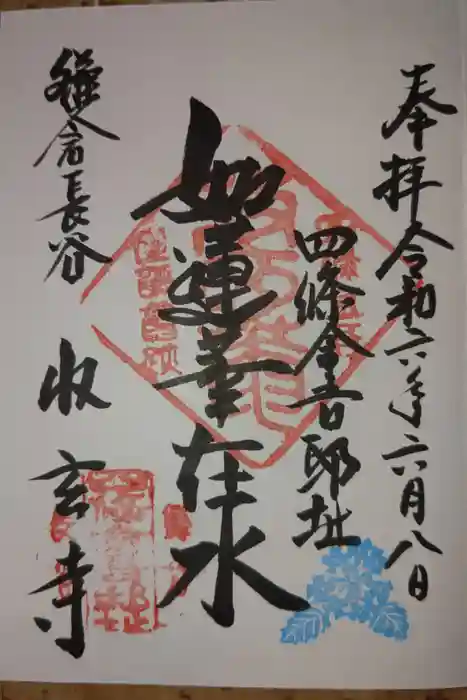 奉拝 令和六年六月八日
四條金吾邸址
如蓮華在水
鎌倉長谷 收玄寺